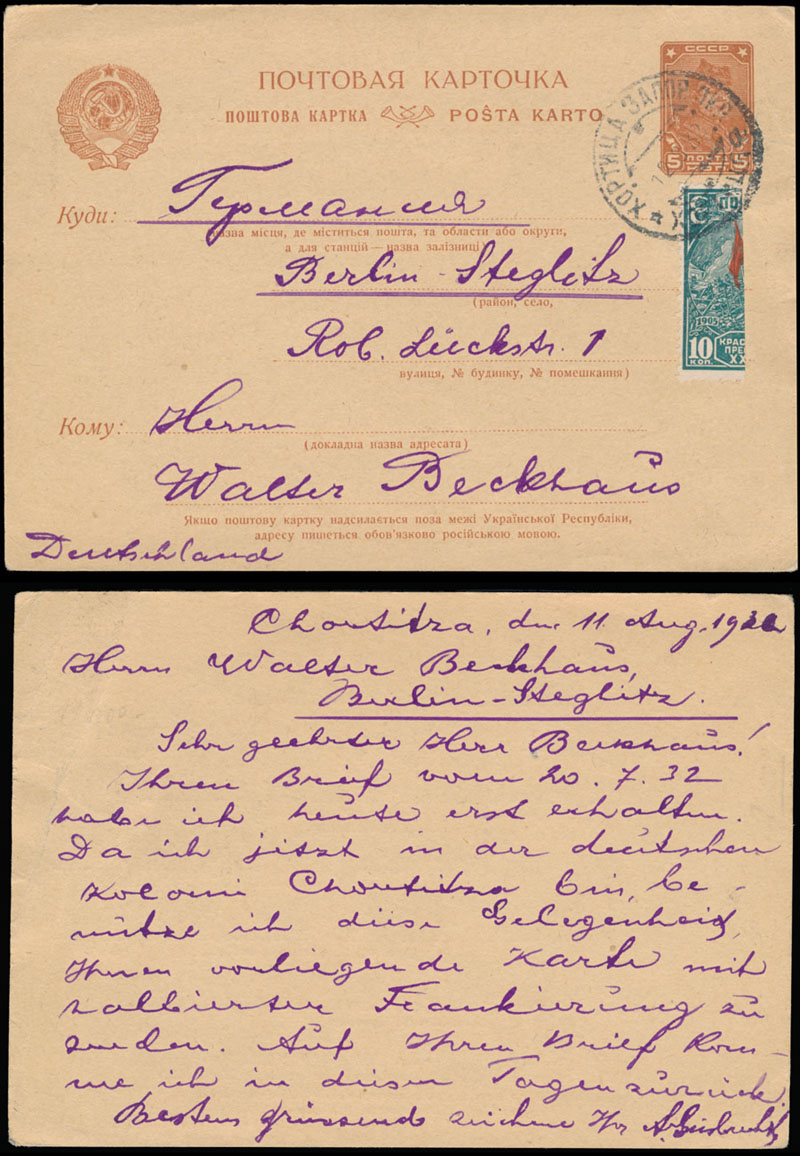 СССР
ПОЧТОВАЯ КАРТОЧКА
ПОШТОВА КАРТКА POŜTA KARTO
5 5
ХОРТИЦА ЗАПОР.
Куди: Германия
(назва місця, де міститься пошта, та области або округи,
а для станцій — назва залізниці)
Berlin-Steglitz
(район, село,
Rob. Lückstr. 1
вулиця, № будинку, № помешкання)
1905
10 КОП.
КРАС
ПРЕ
XX
Кому: Herrn
(докладна назва адресата)
Walter Beckhaus
Якщо поштову картку надсилається поза межі Української Республіки,
адресу пишеться обов'язково російською мовою.
Deutschland
Chortitza, den 11 Aug. 1932
Herrn Walter Beckhaus,
Berlin-Steglitz.
Sehr geehrter Herr Beckhaus!
Ihren Brief vom 20.7.32
habe ich heute erst erhalten.
Da ich jetzt in der deutschen
Koloni Chortitza bin, be-
nütze ich diese Gelegenheid,
Ihnen vorliegende Karte mit
halbierter Frankierung zu
senden. Auf Ihren Brief kom-
me ich in diesen Tagen zurück.
Bestens grüssend zeichne Ihr